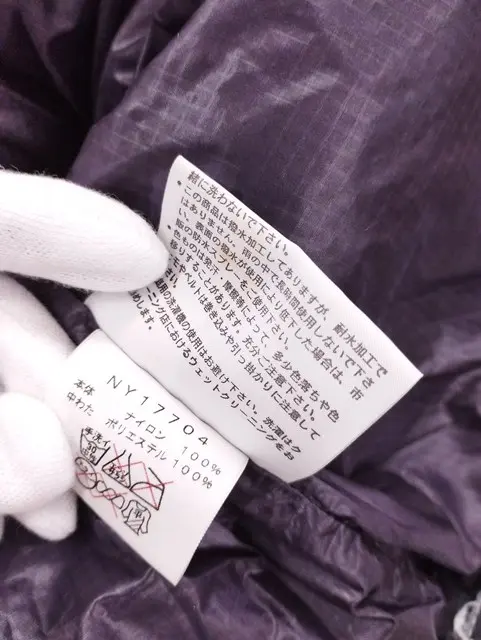 緒に洗わないで下さい。
・この商品は撥水加工してありますが、耐水加工で
はありません。雨の中で長時間使用しないで下さ
い。表面の撥水が使用により低下した場合は、布
防水スプレーをご使用下さい。
色ものは発汗、摩擦等によって、多少色落ちや色
移りすることがあります。充分ご注意下さい。
ベルトは巻き込みや引っ掛かりに注意して
の洗濯機の使用はお避け下さい。洗濯はク
ニング店におけるウェットクリーニングをお
めします。
NY17704
本体 ナイロン 100%
中わた ポリエステル 100%
手洗イ
30
中性